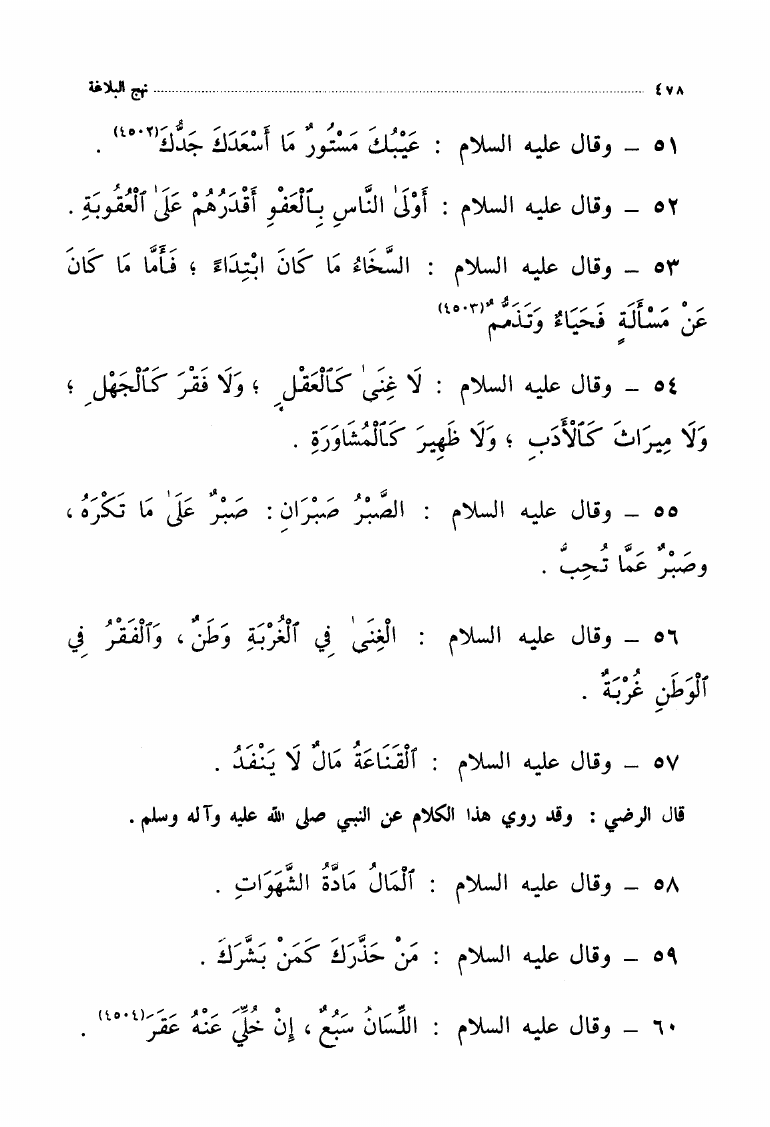 ٤٧٨ ........................................ نهج البلاغة
٥١ – وقال عليه السلام : عَيْبُكَ مَسْتُورٌ مَا أَسْعَدَكَ جَدُّكَ(٤٥٠٢) .
٥٢ – وقال عليه السلام : أَوْلَىٰ النَّاسِ بِٱلْعَفْوِ أَقْدَرُهُمْ عَلَىٰ ٱلْعُقُوبَةِ .
٥٣ – وقال عليه السلام : السَّخَاءُ مَا كَانَ ابْتِدَاءً ؛ فَأَمَّا مَا كَانَ
عَنْ مَسْأَلَةٍ فَحَيَاءٌ وَتَذَمُّمٌ(٤٥٠٣)
٥٤ – وقال عليه السلام : لَا غِنَىٰ كَٱلْعَقْلِ ؛ وَلَا فَقْرَ كَٱلْجَهْلِ ؛
وَلَا مِيرَاثَ كَٱلْأَدَبِ ؛ وَلَا ظَهِيرَ كَٱلْمُشَاوَرَةِ .
٥٥ – وقال عليه السلام : الصَّبْرُ صَبْرَانِ : صَبْرٌ عَلَىٰ مَا تَكْرَهُ ،
وصَبْرٌ عَمَّا تُحِبُّ .
٥٦ – وقال عليه السلام : الْغِنَىٰ فِي ٱلْغُرْبَةِ وَطَنٌ ، وَٱلْفَقْرُ فِي
ٱلْوَطَنِ غُرْبَةٌ .
٥٧ – وقال عليه السلام : ٱلْقَنَاعَةُ مَالٌ لَا يَنْفَدُ .
قال الرضي : وقد روي هذا الكلام عن النبي صلى الله عليه وآله وسلم .
٥٨ – وقال عليه السلام : ٱلْمَالُ مَادَّةُ الشَّهَوَاتِ .
٥٩ – وقال عليه السلام : مَنْ حَذَّرَكَ كَمَنْ بَشَّرَكَ .
٦٠ – وقال عليه السلام : اللِّسَانُ سَبُعٌ ، إِنْ خُلِّيَ عَنْهُ عَقَرَ(٤٥٠٤) .